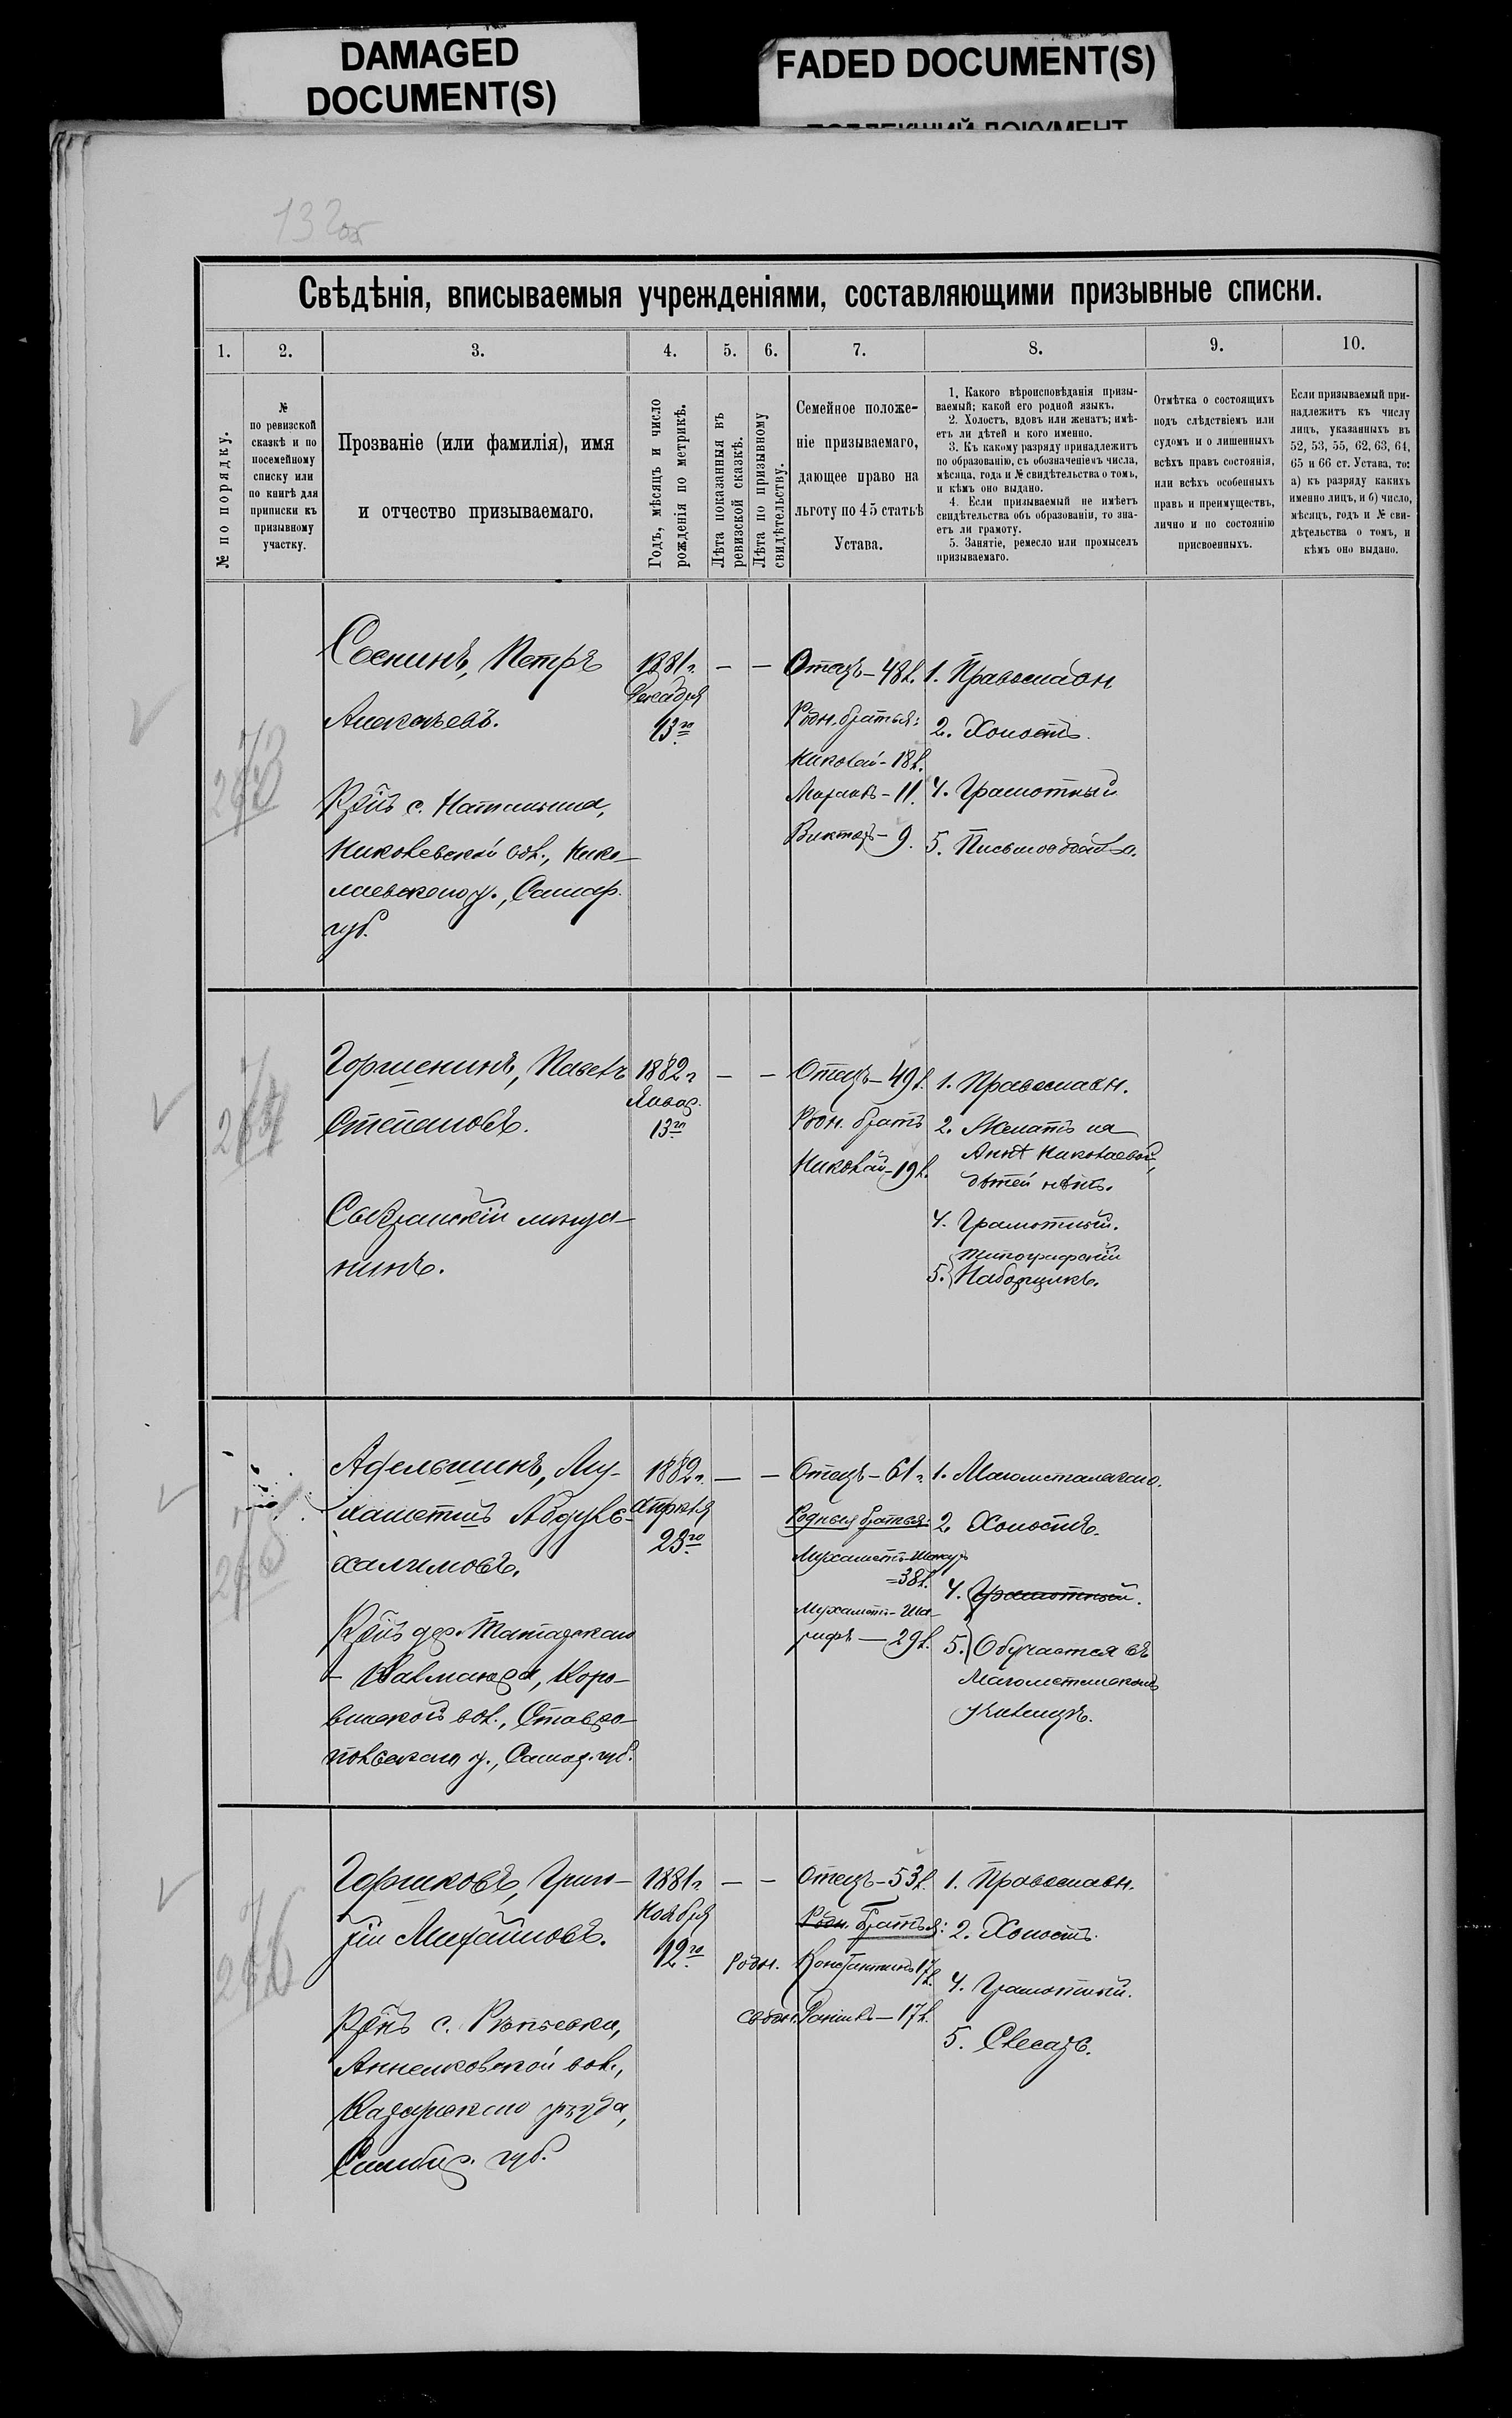 DAMAGED
DOCUMENT(S)
FADED DOCUMENT(S)
132об
Свѣдѣнія, вписываемыя учрежденіями, составляющими призывные списки.
1.
2.
3.
4.
5.
6.
7.
8.
9.
10.
№ по порядку.
№
по ревизской
сказкѣ и по
посемейному
списку или
по книгѣ для
приписки къ
призывному
участку.
Прозваніе (или фамилія), имя
и отчество призываемаго.
Годъ, мѣсяцъ и число
рожденія по метрикѣ.
Лѣта показанныя въ
ревизской сказкѣ.
Лѣта по призывному
свидѣтельству.
Семейное положе-
ніе призываемаго,
дающее право на
льготу по 45 статьѣ
Устава.
1. Какого вѣроисповѣданія призы-
ваемый; какой его родной языкъ.
2. Холостъ, вдовъ или женатъ; имѣ-
етъ ли дѣтей и кого именно.
3. Къ какому разряду принадлежитъ
по образованію, съ обозначеніемъ числа,
мѣсяца, года и № свидѣтельства о томъ,
и кѣмъ оно выдано.
4. Если призываемый не имѣетъ
свидѣтельства объ образованіи, то зна-
етъ ли грамоту.
5. Занятіе, ремесло или промыселъ
призываемаго.
Отмѣтка о состоящихъ
подъ слѣдствіемъ или
судомъ и о лишенныхъ
всѣхъ правъ состоянія,
или всѣхъ особенныхъ
правъ и преимуществъ,
лично и по состоянію
присвоенныхъ.
Если призываемый при-
надлежитъ къ числу
лицъ, указанныхъ въ
52, 53, 55, 62, 63, 64,
65 и 66 ст. Устава, то:
а) къ разряду какихъ
именно лицъ, и б) число,
мѣсяцъ, годъ и № сви-
дѣтельства о томъ, и
кѣмъ оно выдано.
Соснинъ, Петръ
Алексѣевъ.
Кр-нъ с. Натальина,
Николаевской вол., Нико-
лаевскаго у., Самар.
губ.
1881 г.
Декабря
13го
— —
Отецъ – 48 л.
Родн. братья:
Николай – 18 л.
– 11.
Викторъ – 9.
1. Православн
2. Холостъ.
4. Грамотный
5. Письмоводства.
Горшенинъ, Павелъ
Степановъ.
Сызранскій мѣща-
нинъ.
1882 г
Январ.
13го
— —
Отецъ – 49 л.
Родн. братъ
Николай – 19 л.
1. Православн.
2. Женатъ на
Аннѣ Николаевой,
дѣтей нѣтъ.
4. Грамотный.
5. Типографскій
Наборщикъ.
Адельшинъ, Му-
хаметшъ Абдулъ-
халимовъ.
Кр-нъ дер. Татарскаго
, Коро-
винской вол., Ставро-
польскаго у., Самар. губ.
1882 г.
Апрѣля
23го
— —
Отецъ – 61 г.
Родныя братья:
= 38 л.
Мухаметъ-Ша-
рифъ — 29 л.
1. Магометанскаго.
2. Холостъ.
4. Грамотный.
5. Обучается въ
Магометанскомъ
училищѣ.
Горшковъ, Григо-
рій Михайловъ.
Кр-нъ с. Рѣпьевки,
Анненковской вол.,
Карсунскаго уѣзда,
Симбир. губ.
1881 г.
Ноября
12го
— —
Отецъ – 53 л.
Родн. братья:
родн. Константинъ 17 л.
сводн. — 17 л.
1. Православн.
2. Холостъ.
4. Грамотный.
5. Слесарь.